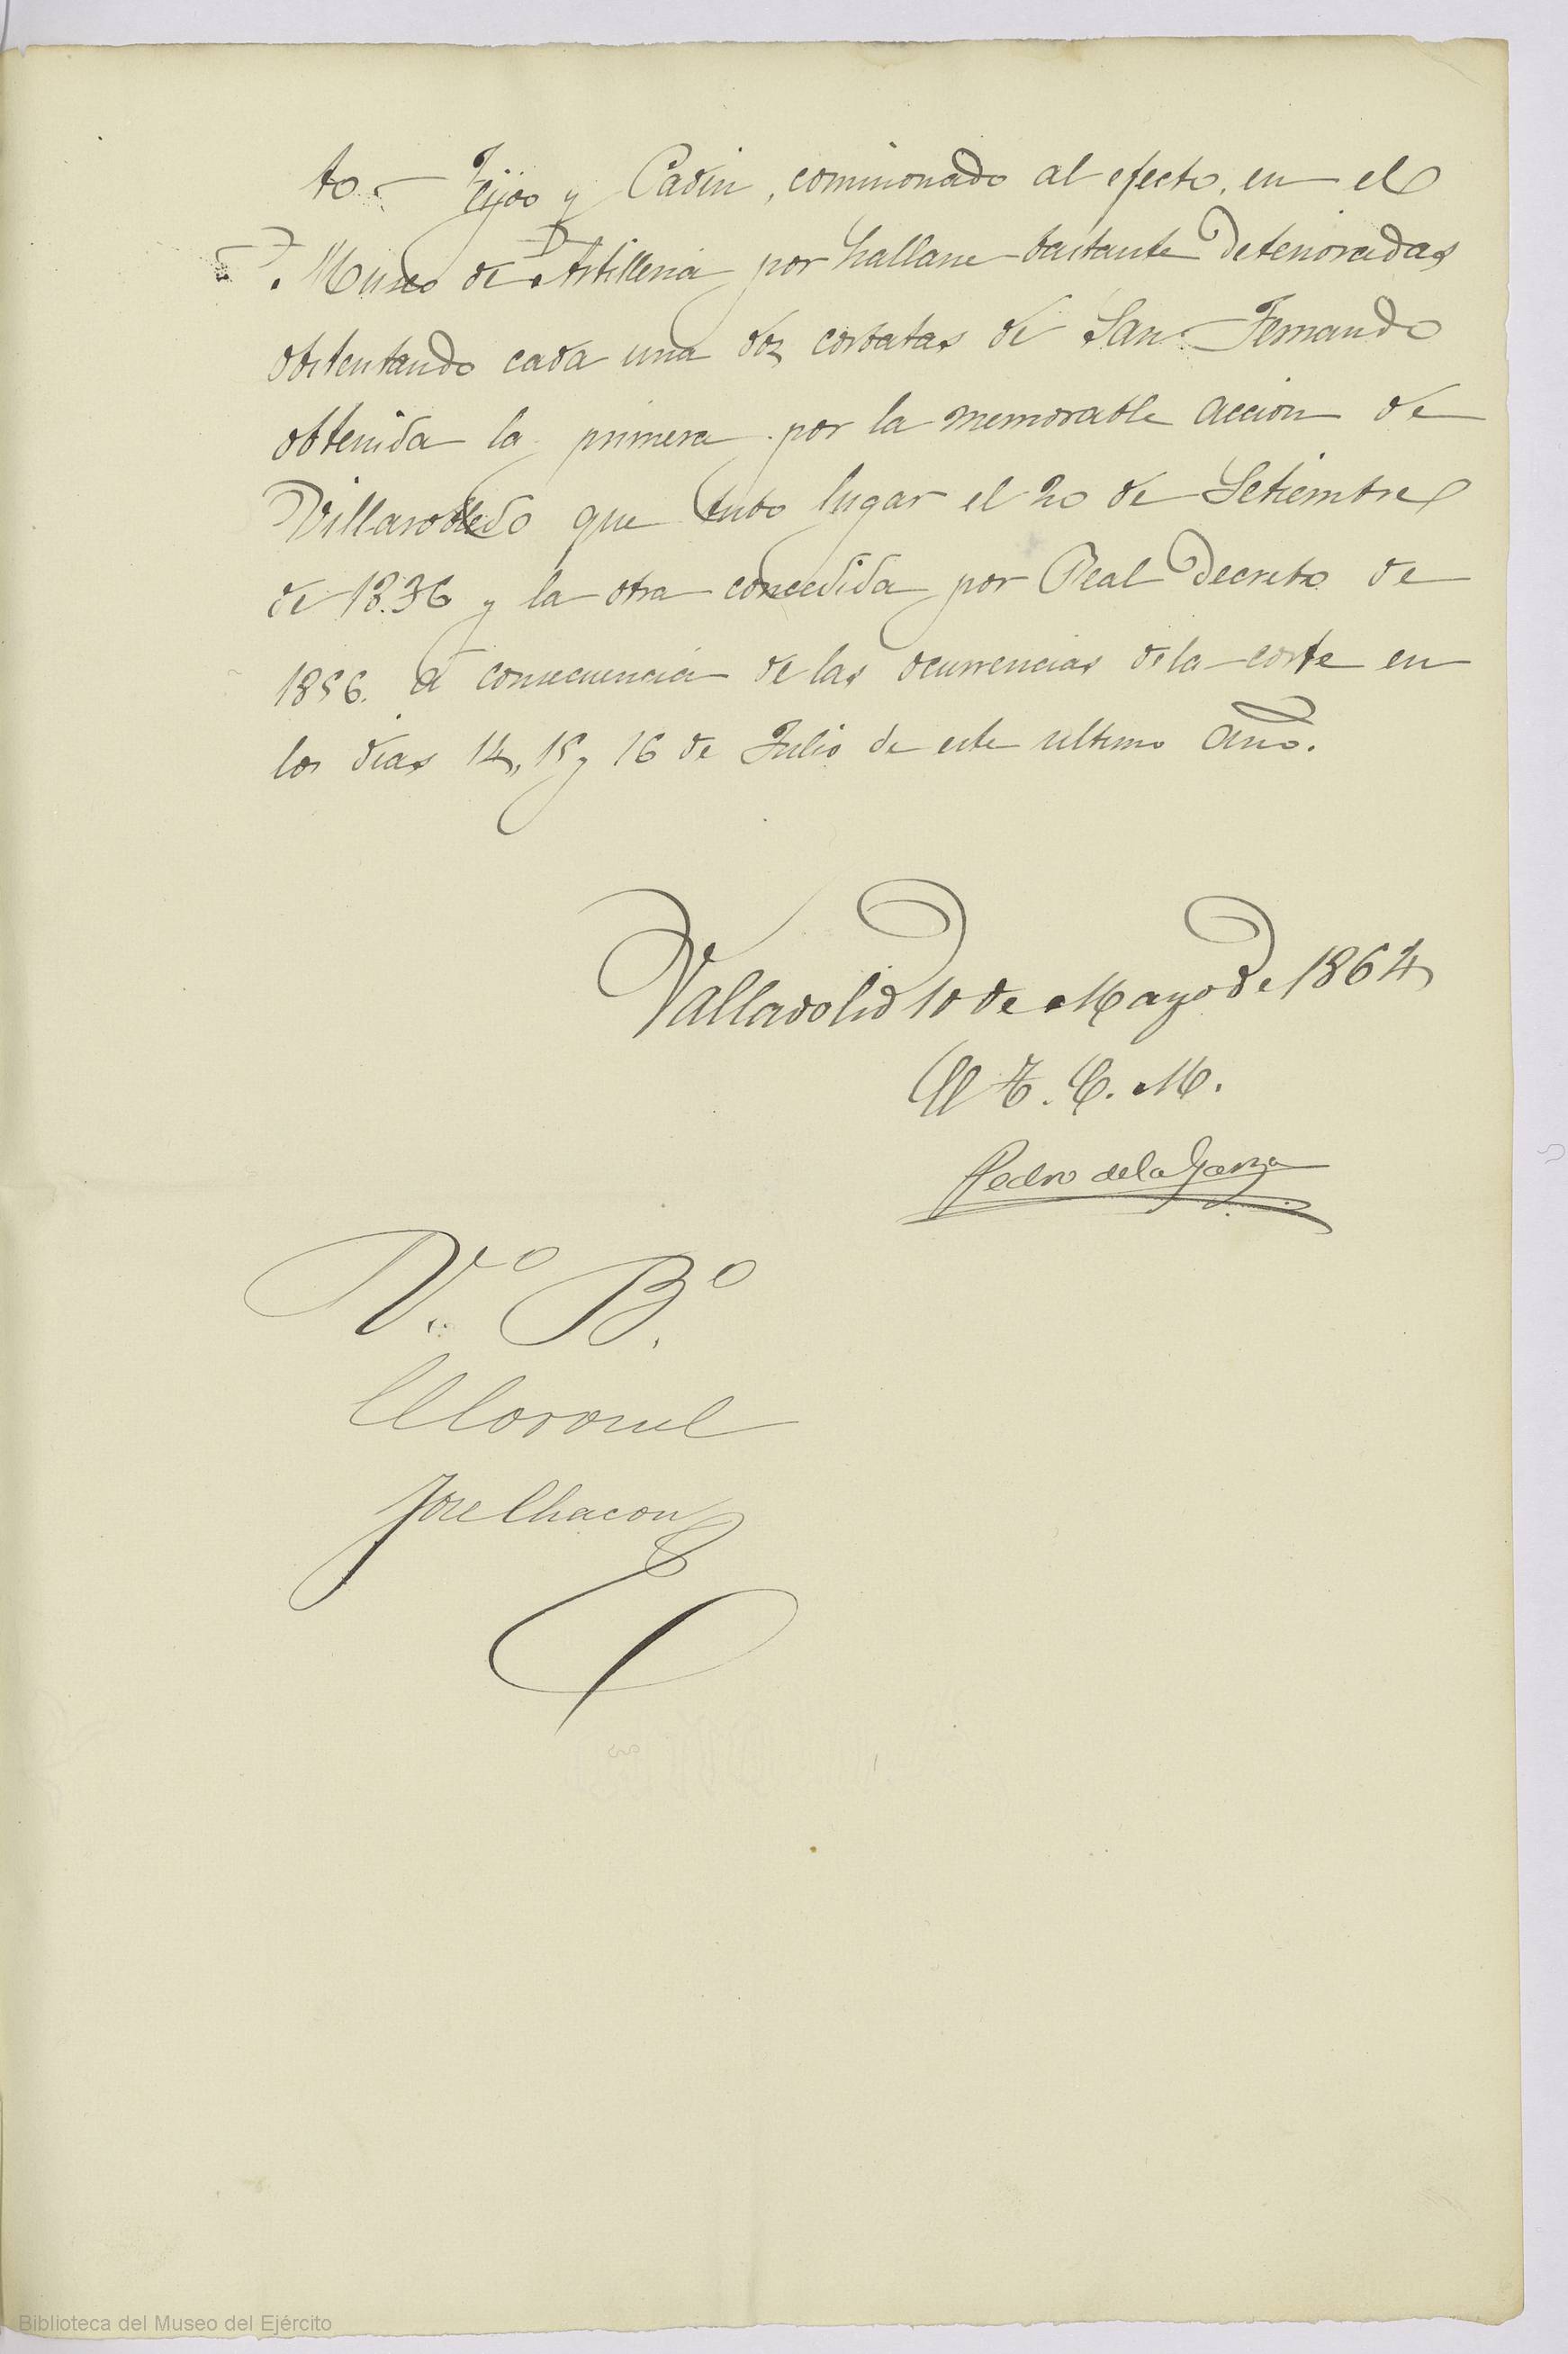 to. Feijoo y Cadin, comisionado al efecto, en el
Museo de Artilleria por hallarse bastante deterioradas
obstentando cada una dos corbatas de San Fernando
obtenida la primera por la memorable accion de
Villarobledo que tubo lugar el 20 de Setiembre
de 1836 y la otra concedida por Real decreto de
1856. á consecuencia de las ocurrencias de la corte en
los dias 14, 15 y 16 de Julio de este ultimo año.
Valladolid 10 de Mayo de 1864
El T. C. M.
Pedro de la Garza
V.º B.º
El Coronel
Jose Chacon
Biblioteca del Museo del Ejército